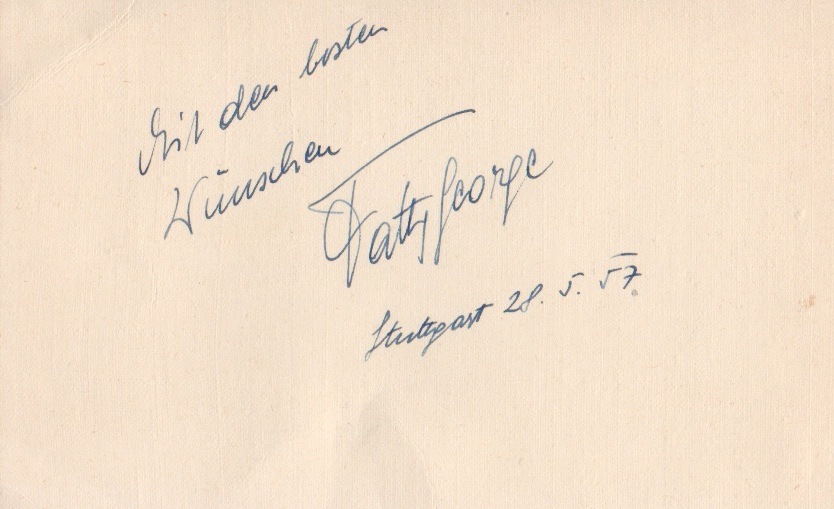 Mit den besten
Wünschen
Fatty George
Stuttgart 28. 5. 57.